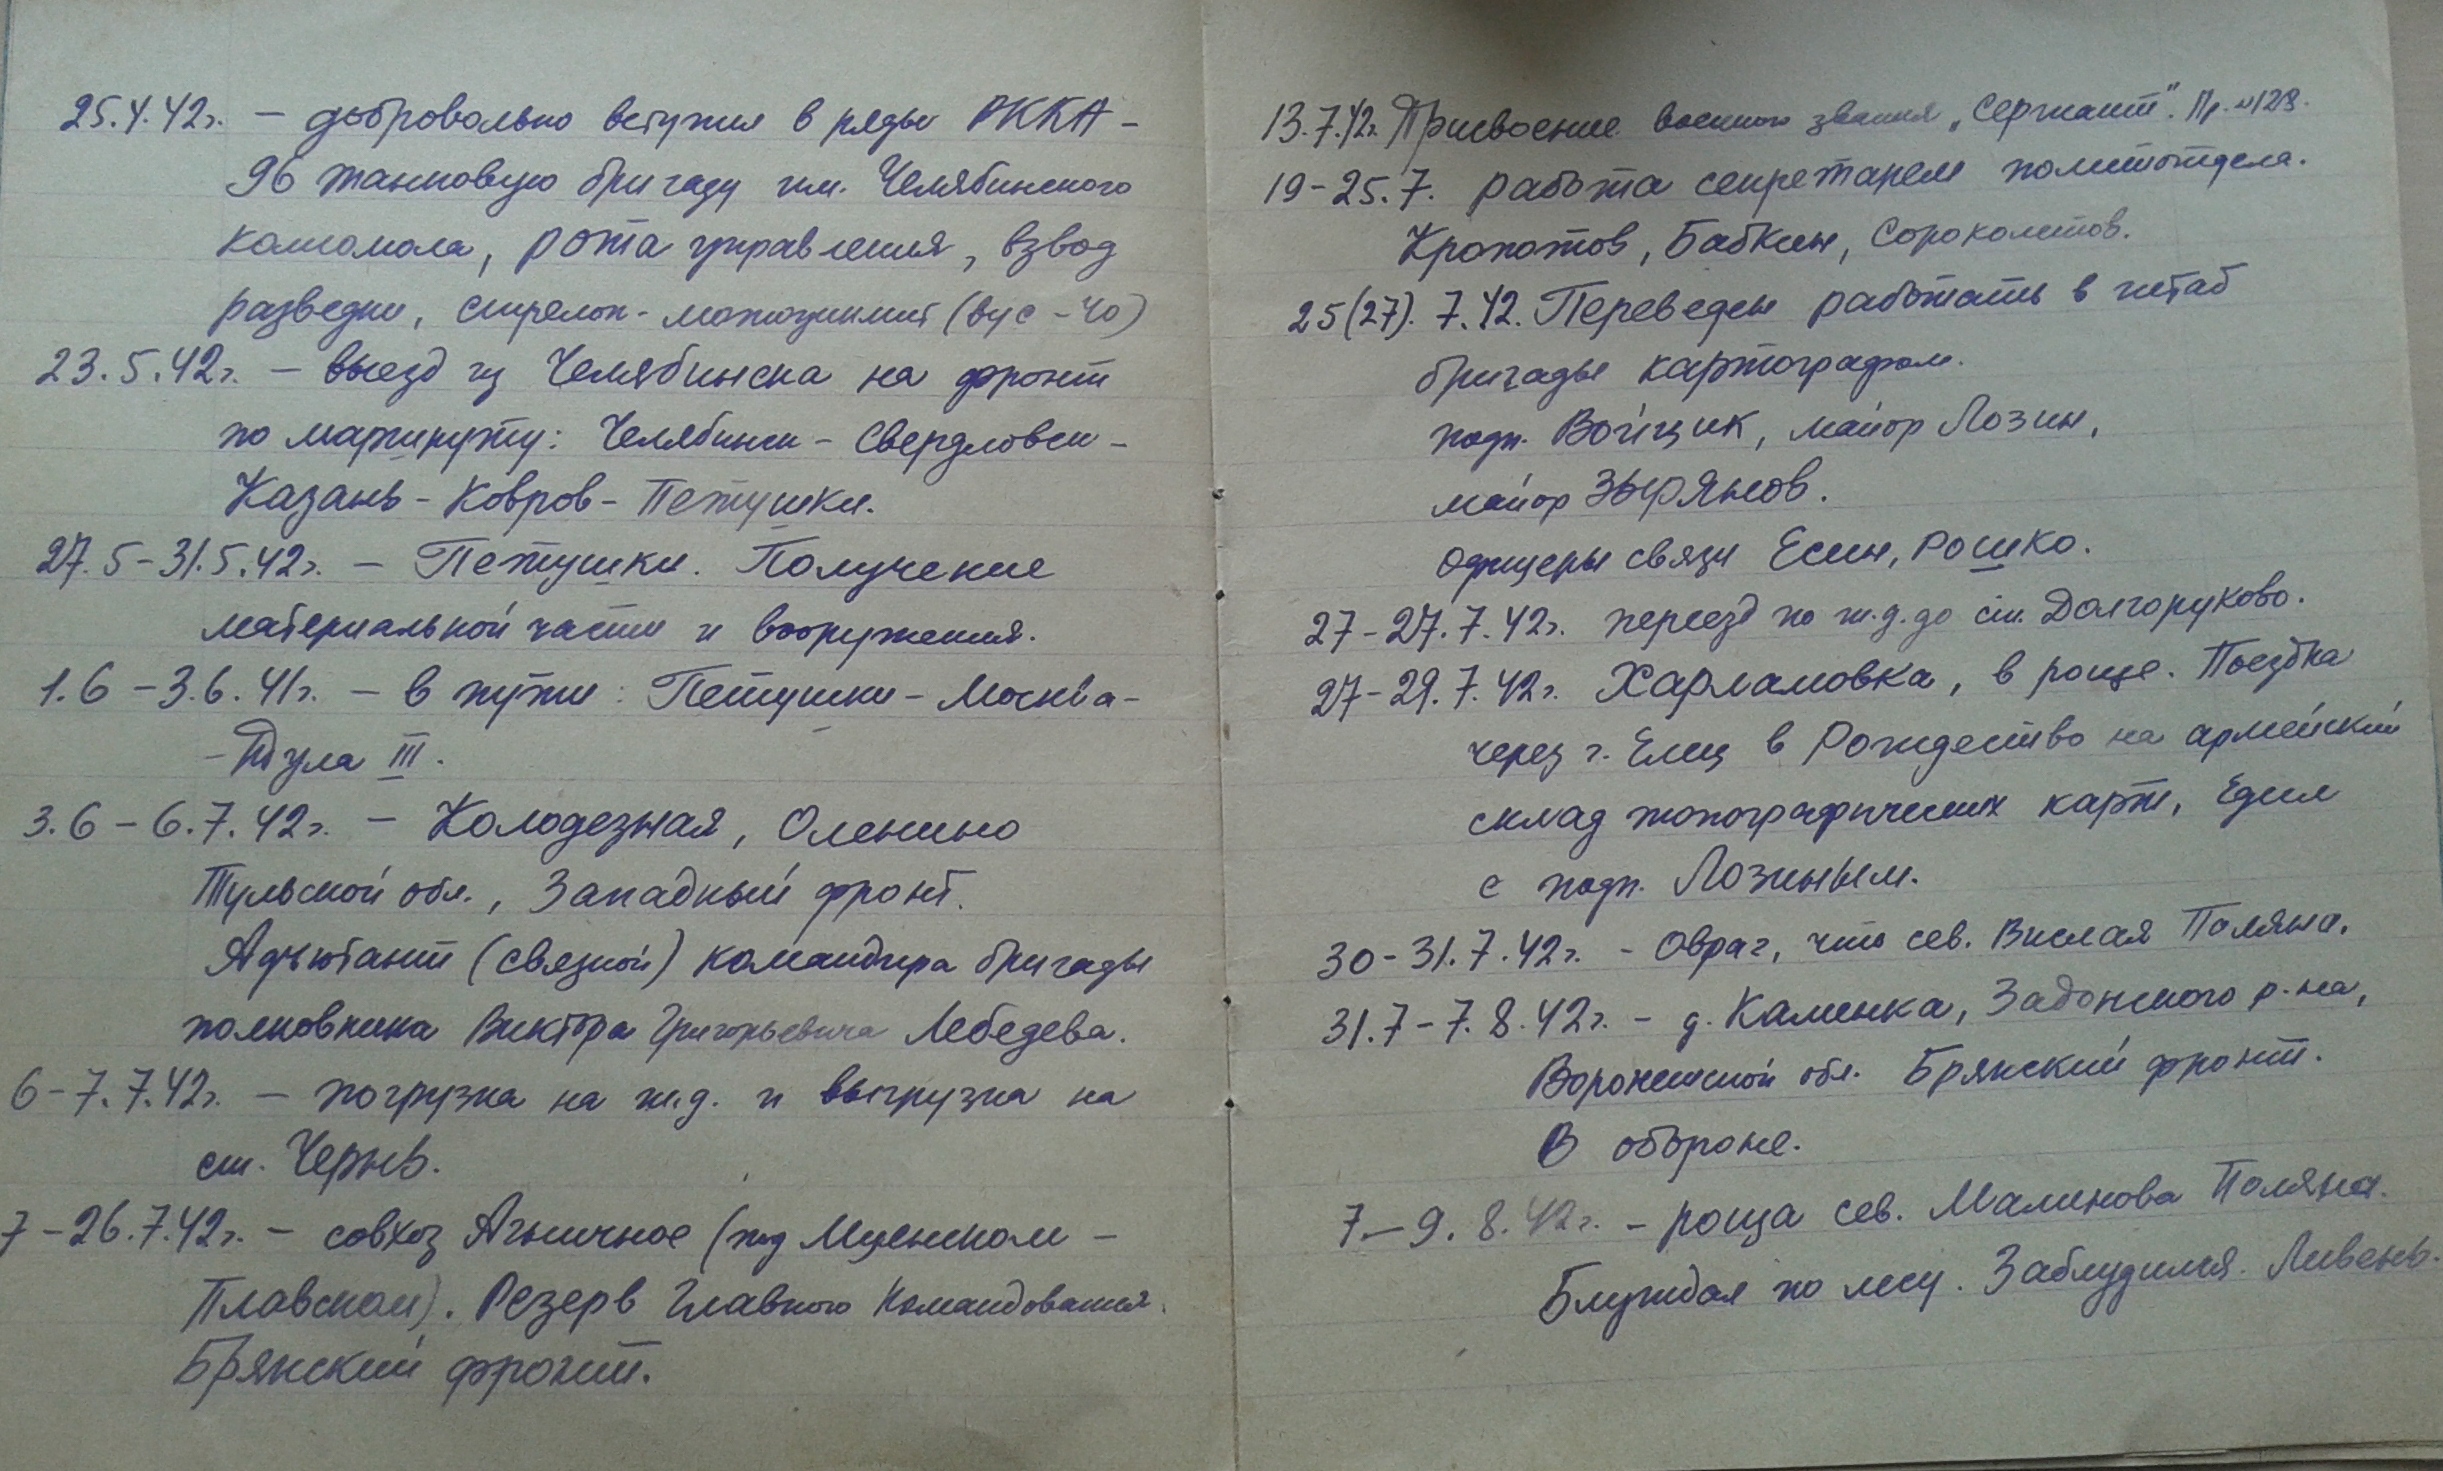 25.4.42г. – добровольно вступил в ряды РККА –
96 танковую бригаду им. Челябинского
комсомола, рота управления, взвод
разведки, стрелок-мотоциклист (вус – 40)
23.5.42г. – выезд из Челябинска на фронт
по маршруту: Челябинск – Свердловск –
Казань – Ковров – Петушки.
27.5 – 31.5.42г. – Петушки. Получение
материальной части и вооружения.
1.6 – 3.6.41г. – в пути: Петушки – Москва –
– Тула III.
3.6 – 6.7.42г. – Колодезная, Оленино
Тульской обл., Западный фронт.
Адъютант (связной) командира бригады
полковника Виктора Григорьевича Лебедева.
6 – 7.7.42г. – погрузка на ж.д. и выгрузка на
ст. Чернь.
7 – 26.7.42г. – совхоз Агничное (под Мценском –
Плавском). Резерв Главного Командования.
Брянский фронт.
13.7.42г. Присвоение военного звания „Сержант". Пр. №128.
19 – 25.7. работа секретарем политотдела.
Кропотов, Бабкин, Сороколетов.
25(27). 7.42. Переведен работать в штаб
бригады картографом.
подп. Войцик, майор Лозин,
майор Зырянов.
Офицеры связи Есин, Рошко.
27 – 27.7.42г. переезд по ж.д. до ст. Долгоруково.
27 – 29.7.42г. Харламовка, в роще. Поездка
через г. Елец в Рождество на армейский
склад топографических карт, Ездил
с подп. Лозиным.
30 – 31.7.42г. – Овраг, что сев. Вислая Поляна.
31.7 – 7.8.42г. – д. Каменка, Задонского р-на,
Воронежской обл. Брянский фронт.
В обороне.
7 – 9.8.42г. – роща сев. Малинова Поляна.
Блуждал по лесу. Заблудился. Ливень.